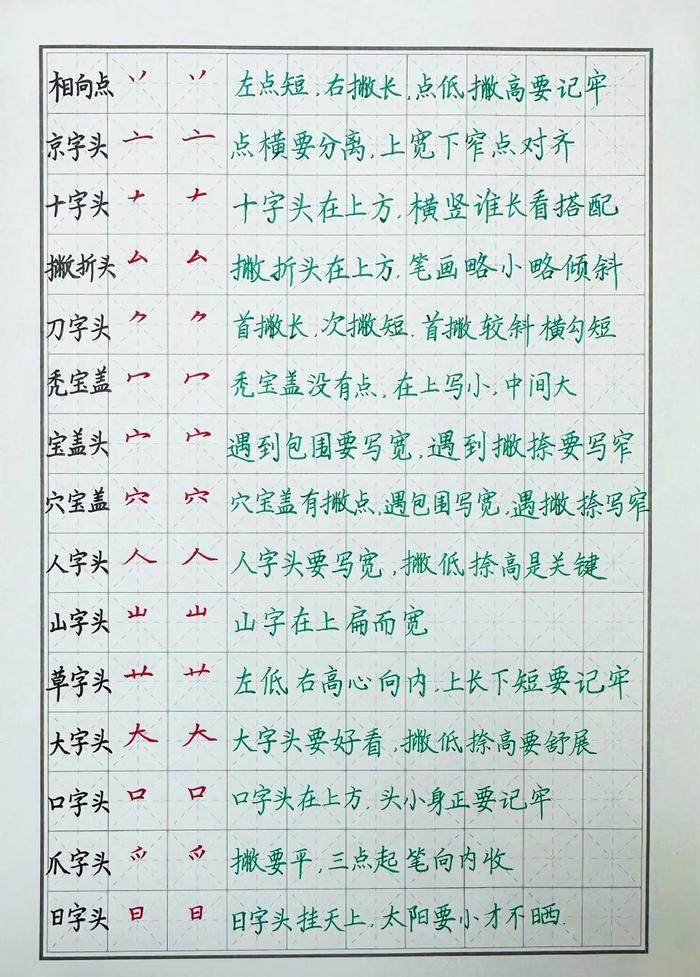 相向点 丷 丷 左点短，右撇长，点低撇高要记牢
京字头 亠 亠 点横要分离，上宽下窄点对齐
十字头 十 十 十字头在上方，横竖谁长看搭配
撇折头 厶 厶 撇折头在上方，笔画略小略倾斜
刀字头 ⺈ ⺈ 首撇长，次撇短，首撇较斜横勾短
秃宝盖 冖 冖 秃宝盖没有点，在上写小，中间大
宝盖头 宀 宀 遇到包围要写宽，遇到撇捺要写窄
穴宝盖 穴 穴 穴宝盖有撇点，遇包围写宽，遇撇捺写窄
人字头 人 人 人字头要写宽，撇低捺高是关键
山字头 山 山 山字在上扁而宽
草字头 艹 艹 左低右高心向内，上长下短要记牢
大字头 大 大 大字头要好看，撇低捺高要舒展
口字头 口 口 口字头在上方，头小身正要记牢
爪字头 爫 爫 撇要平，三点起笔向内收
日字头 日 日 日字头挂天上，太阳要小才不晒